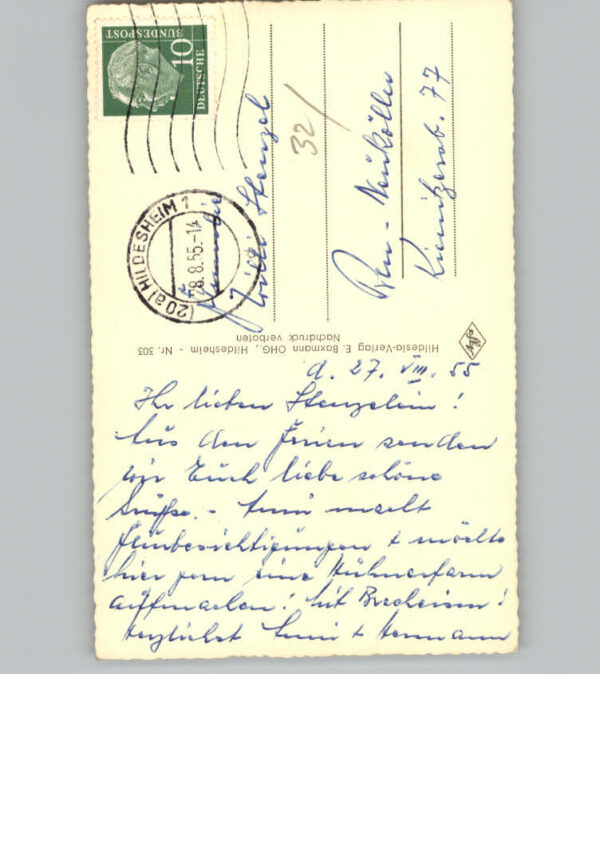 DEUTSCHE
BUNDESPOST
10
(20a) HILDESHEIM 1
28.8.55.-14
Familie
Willi Stenzel
32/
Bln - Neukölln
Kienitzerstr. 77
Hildesia-Verlag E. Baxmann OHG., Hildesheim - Nr. 303
Nachdruck verboten
Agfa
d. 27. VIII. 55
Ihr lieben Stenzelein!
Aus den Ferien senden
wir Euch liebe schöne
Grüße. - macht
+ möchte
hier gern eine Hühnerfarm
aufmachen! Mit
Herzlichst + Hermann